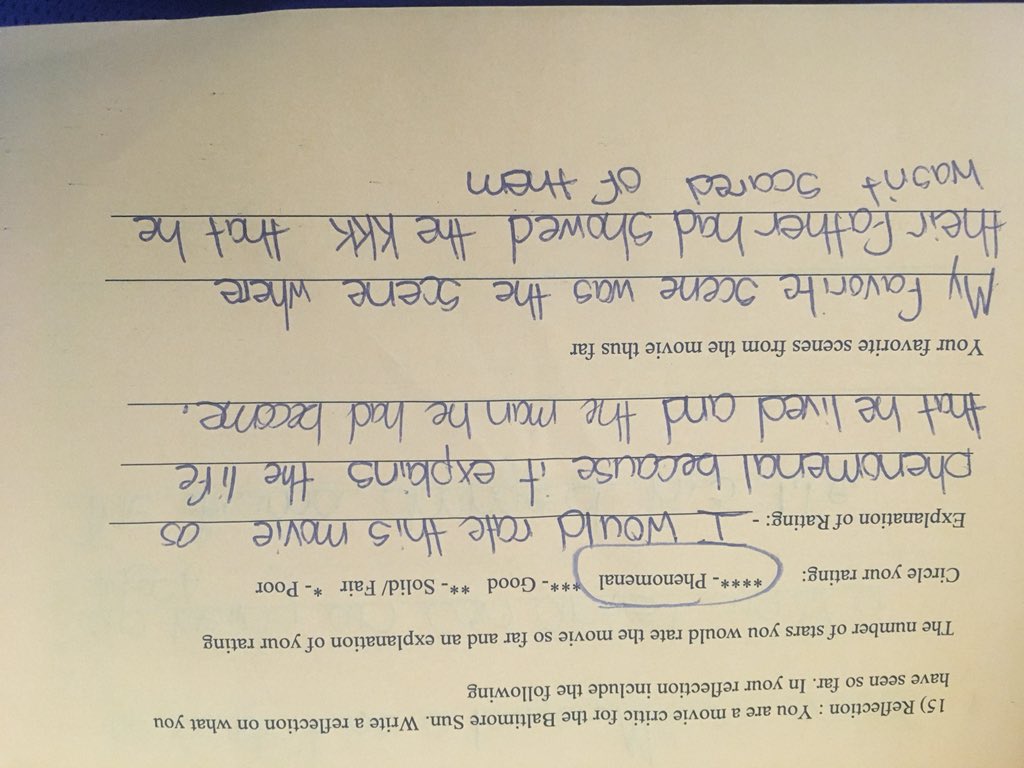 15) Reflection : You are a movie critic for the Baltimore Sun. Write a reflection on what you
have seen so far. In your reflection include the following
The number of stars you would rate the movie so far and an explanation of your rating
Circle your rating: ****- Phenomenal ***- Good **- Solid/ Fair *- Poor
Explanation of Rating: - I would rate this movie as
phenomenal because it explains the life
that he lived and the man he had become.
Your favorite scenes from the movie thus far
My favorite scene was the scene where
their father had showed the KKK that he
wasn't scared of them